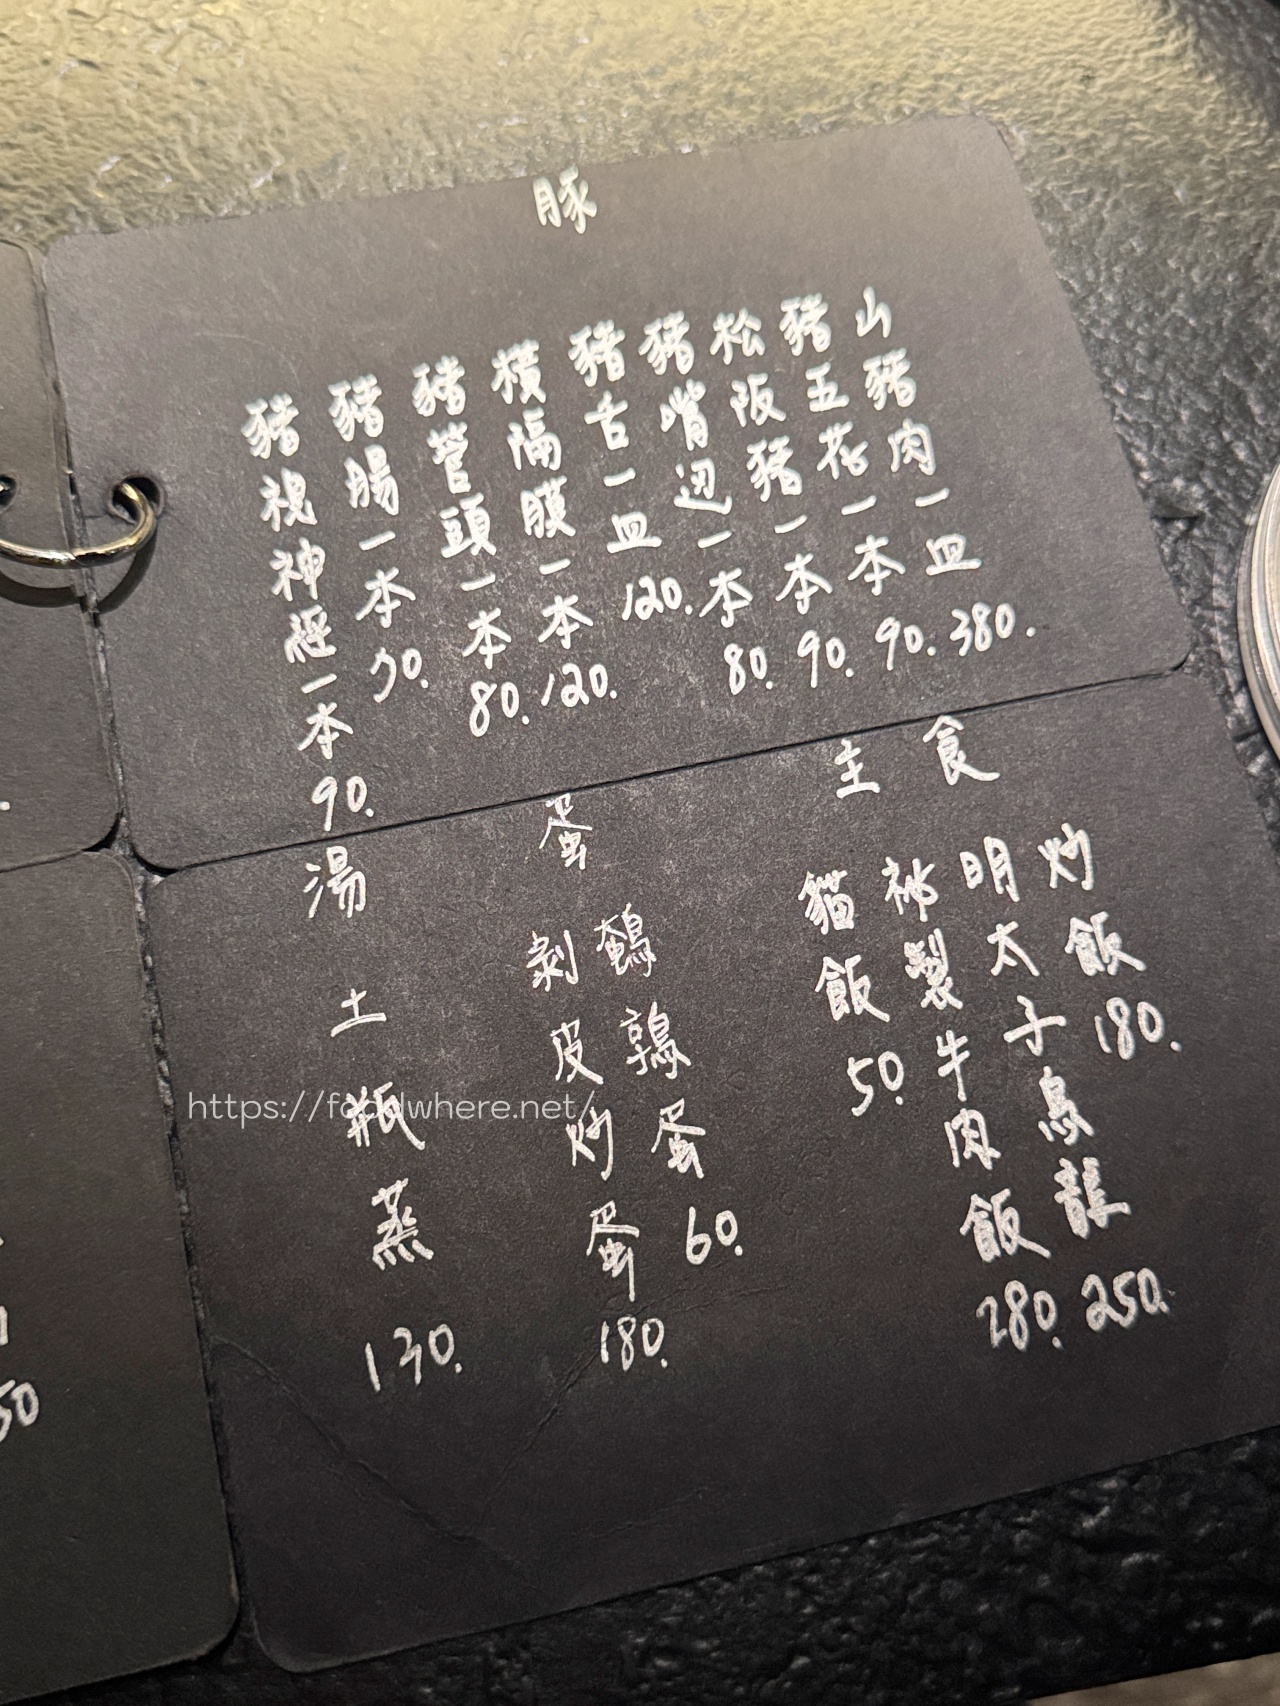 豚
山豬肉一皿 380.
豬五花一本 90.
松阪豬一本 90.
豬嘴边一本 80.
豬舌一皿 120.
橫隔膜一本 120.
豬管頭一本 80.
豬腸一本 70.
豬視神經一本 90.
主食
炒飯 180.
明太子烏龍 250.
祕製牛肉飯 280.
貓飯 50.
蛋
鵪鶉蛋 60.
剝皮炒蛋 180.
湯
土瓶蒸 130.
50
https://foodwhere.net/